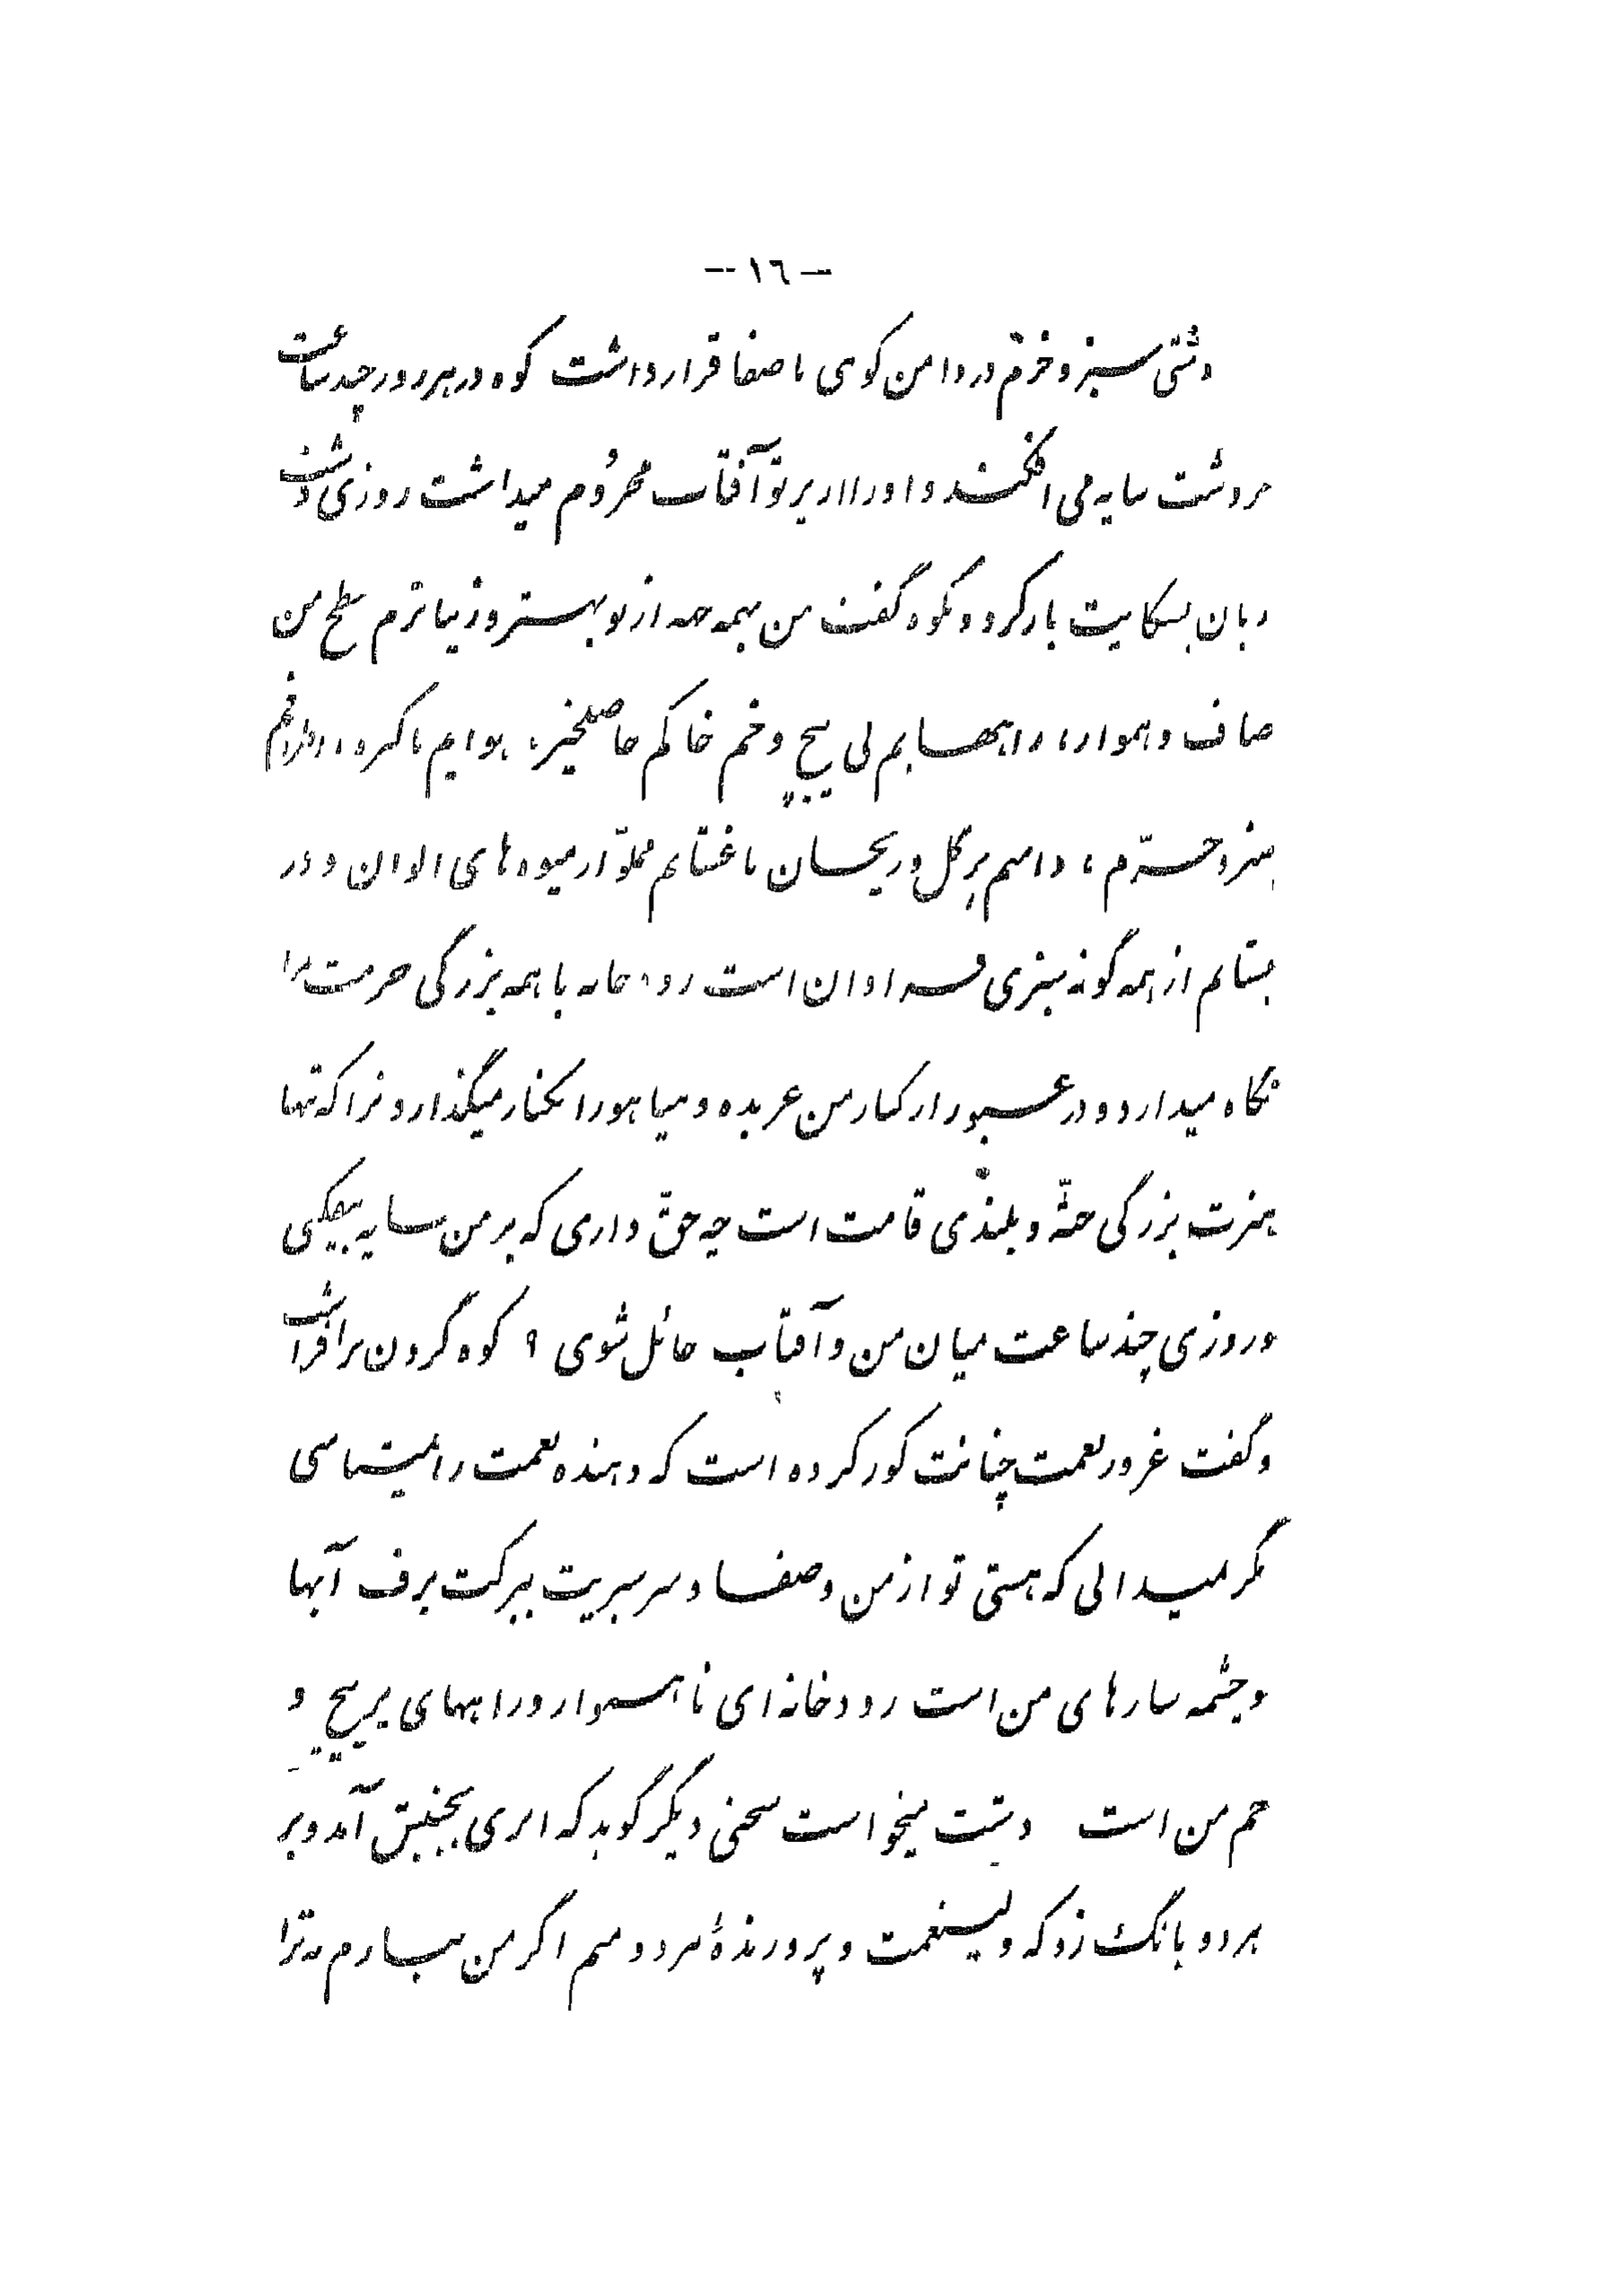 — ١٦ —
دشتی سبز و خرّم در دامن کوهی با صفا قرار داشت کوه در هر روز چند ساعت
بر دشت سایه می افکند و او را از پرتو آفتاب محرُوم میداشت روزی دشت
زبان بشکایت باز کرد و بکوه گفت من بهمه جهه از تو بهتر و زیباترم سطح من
صاف و هموار، راههایم بی پیچ و خم خاکم حاصلخیز، هوایم پاکیزه، اطرافم
سبز و خرّم، دامنم پر گل و ریحان باغهایم مملوّ از میوه های الوان و در
بستانم از همه گونه سبزی فراوان است رودخانه با همه بزرگی حرمت مرا
نگاه میدارد و در عبور از کنار من عربده و هیاهو را بکنار میگذارد و ترا که تنها
هنرت بزرگی جثّه و بلندی قامت است چه حقّ داری که بر من سایه بیفکنی
و روزی چند ساعت میان من و آفتاب حائل شوی ؟ کوه گردن برافراشت
و گفت غرور نعمت چنانت کور کرده است که دهنده نعمت را نمیشناسی
مگر نمیدانی که هستی تو از من و صفا و سرسبزیت ببرکت برف آبها
و چشمه سارهای من است رودخانه ای ناهموار و راههای پر پیچ و
خم من است دشت میخواست سخنی دیگر گوید که ابری بجنبش آمد و بر
هر دو بانگ زد که ولینعمت و پرورندهٔ هر دو منم اگر من نبارم نه ترا